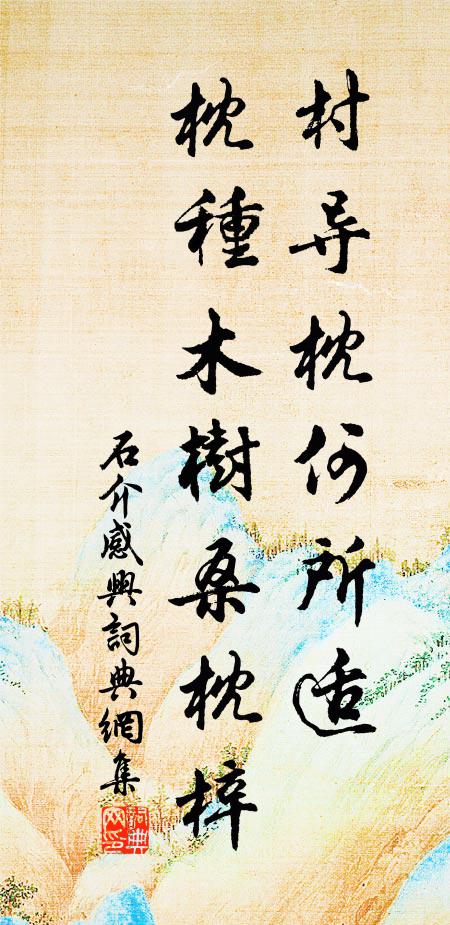 村导枕何所适
枕種木樹桑枕梓
石介感興詞典網集
詞典